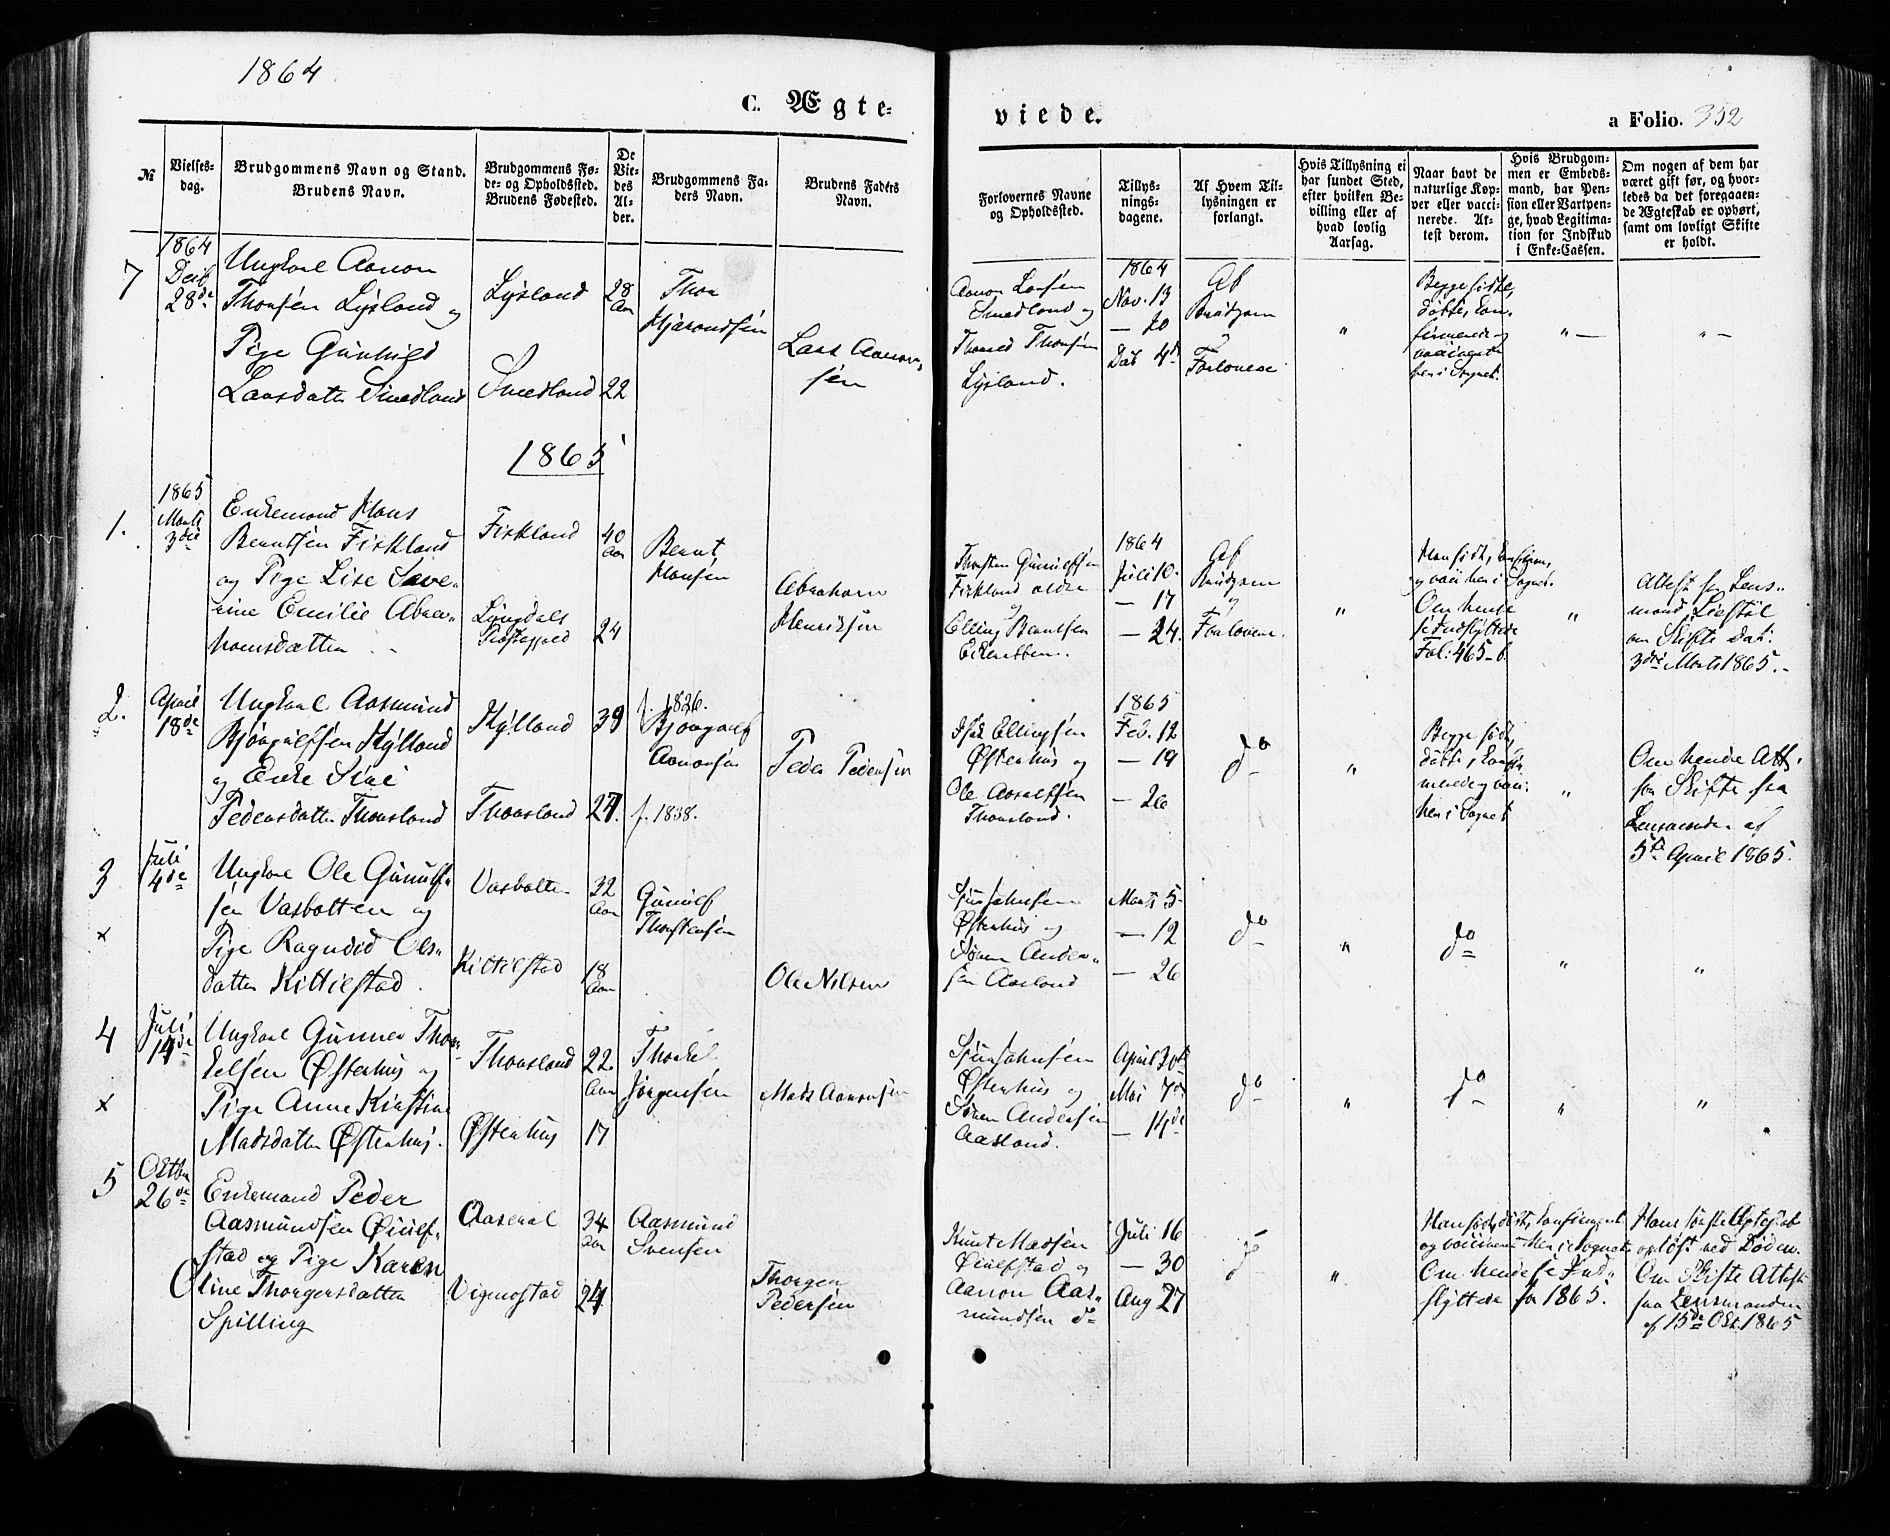 1864
C. Ægte-
viede.
a Folio. 352
№
Vielses-
dag.
Brudgommens Navn og Stand.
Brudens Navn.
Brudgommens Fø-
de- og Opholdssted.
Brudens Fødested.
De
Vie-
des
Al-
der.
Brudgommens Fa-
ders Navn.
Brudens Faders
Navn.
Forlovernes Navne
og Opholdssted.
Tillys-
nings-
dagene.
Af Hvem Til-
lysningen er
forlangt.
Hvis Tillysning ei
har fundet Sted,
efter hvilken Be-
villing eller af
hvad lovlig
Aarsag.
Naar havt de
naturlige Kop-
per eller vacci-
nerede. At-
test derom.
Hvis Brudgom-
men er Embeds-
mand, har Pen-
sion eller Vartpen-
ge, hvad Legitima-
tion for Indskud
i Enke-Cassen.
Om nogen af dem har
været gift før, og hvor-
ledes da det foregaaen-
de Ægteskab er ophørt,
samt om lovligt Skifte
er holdt.
7
1864
Decb
28de
Ungkarl Aanon
Thorsen Lysland og
Pige Gunhild
Larsdatter Smedland
Lysland
Smedland
28
Aar
22
Thor
Lars Aanon-
sen
Aanon Larsen
Smedland og
Thorsen
Lysland.
1864
Nov. 13
— 20
Dec 4de
Af
Brudgom
og
Forlovere
"
Begge fødte,
døbte, Con-
firmerede og
vaccinerte
her i Sognet.
" —
" —
1865
1.
1865
Marts
3die
Enkemand Hans
Berntsen Fiskland
og Pige Lise Seve-
rine Emilie Abra-
hamsdatter
Fiskland
Lyngdals
Præstegjeld
40
Aar
24
Bernt
Hansen
Abraham
Henriksen
Thorsten Gunulfsen
Fiskland ældre
og
Elling Berntsen
1864
Juli 10.
— 17
— 24.
Af
Brudgom
og
Forlovere.
"
Han født, confirm,
og vacc her i Sognet.
Om hende
se Indflyttede
Fol: 465-b.
"
Attest fra Lens-
mand Liestøl
om Skifte dat:
3die Marts 1865.-
2.
April
18de
Ungkarl Aasmund
Bjorgulfsen Kylland
og Enke Siri
Pedersdatter Thorsland
Kylland
Thorsland
39
27.
f. 1826.
Bjorgulf
Aanonsen
f. 1838.
Peder Pedersen
Isak Ellingsen
Østerhus og
Ole Asulfsen
Thorsland.
1865
Feb. 12
— 19
— 26
do
"
Begge født,
døbte, Confir-
merede og vacc:
her i Sognet
"
Om hende Att:
for Skifte fra
Lensmanden af
5te April 1865.
3
x
Juli
4de
Ungkarl Ole Gunulf-
sen Vasbotten og
Pige Ragnild Ols-
datter Kittilstad.
Vasbotten
Kittilstad
32
Aar
18
Aar
Gunulf
Thorstensen
Ole Nilsen
Sjur Johnsen
Østerhus og
Søren Ander-
sen Aasland
Marts 5
— 12
— 26
do
"
do
"
"
4
x
Juli
14de
Ungkarl Gunner Thor-
kelsen Østerhus og
Pige Anne Kirstine
Madsdatter Østerhus.
Thorsland
Østerhus
22
Aar
17
Thorkel
Jørgensen
Mads Aanonsen
Sjur Johnsen
Østerhus og
Søren Andersen
Aasland.
April 30te
Mai 7de
— 14de
do
"
do
"
"
5
Oktbr
26de
Enkemand Peder
Aasmundsen Øiulf-
stad og Pige Karen
Oline Thorgersdatter
Spilling
Aaseral
Vigmostad
34
Aar
24
Aasmund
Svensen
Thorger
Pedersen
Knut Madsen
Øiulfstad og
Aanon Aas-
mundsen do
Juli 16
— 30
Aug 27
do
"
Han født, døbt, confirmeret
og vaccineret her i Sognet.
Om hende se Ind-
flyttede for 1865.
Hans første Ægteskab
opløst ved Døden.
Om Skifte Attest
fra Lensmanden
af 15de Okt. 1865